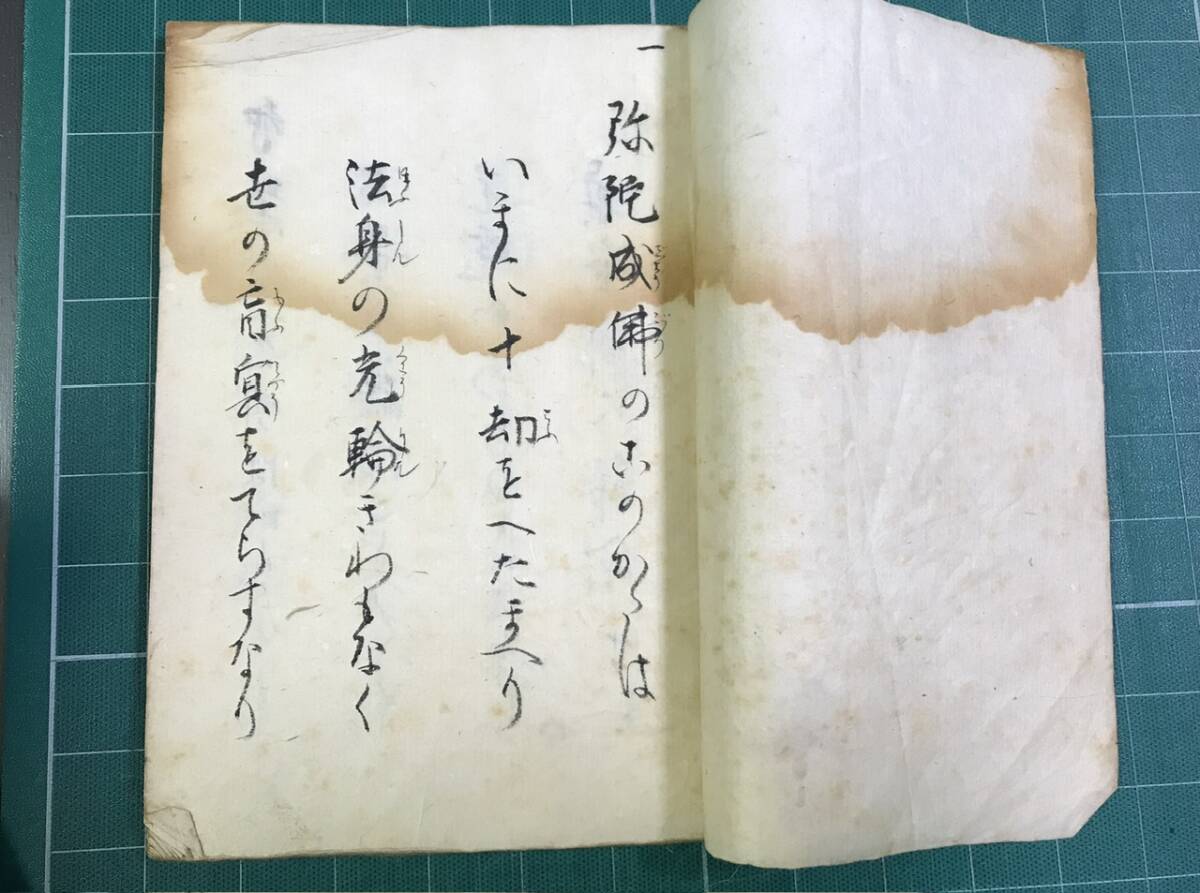 一
弥陀成佛のこのかたは
いまに十劫をへたまへり
法身の光輪きわもなく
世の盲冥をてらすなり